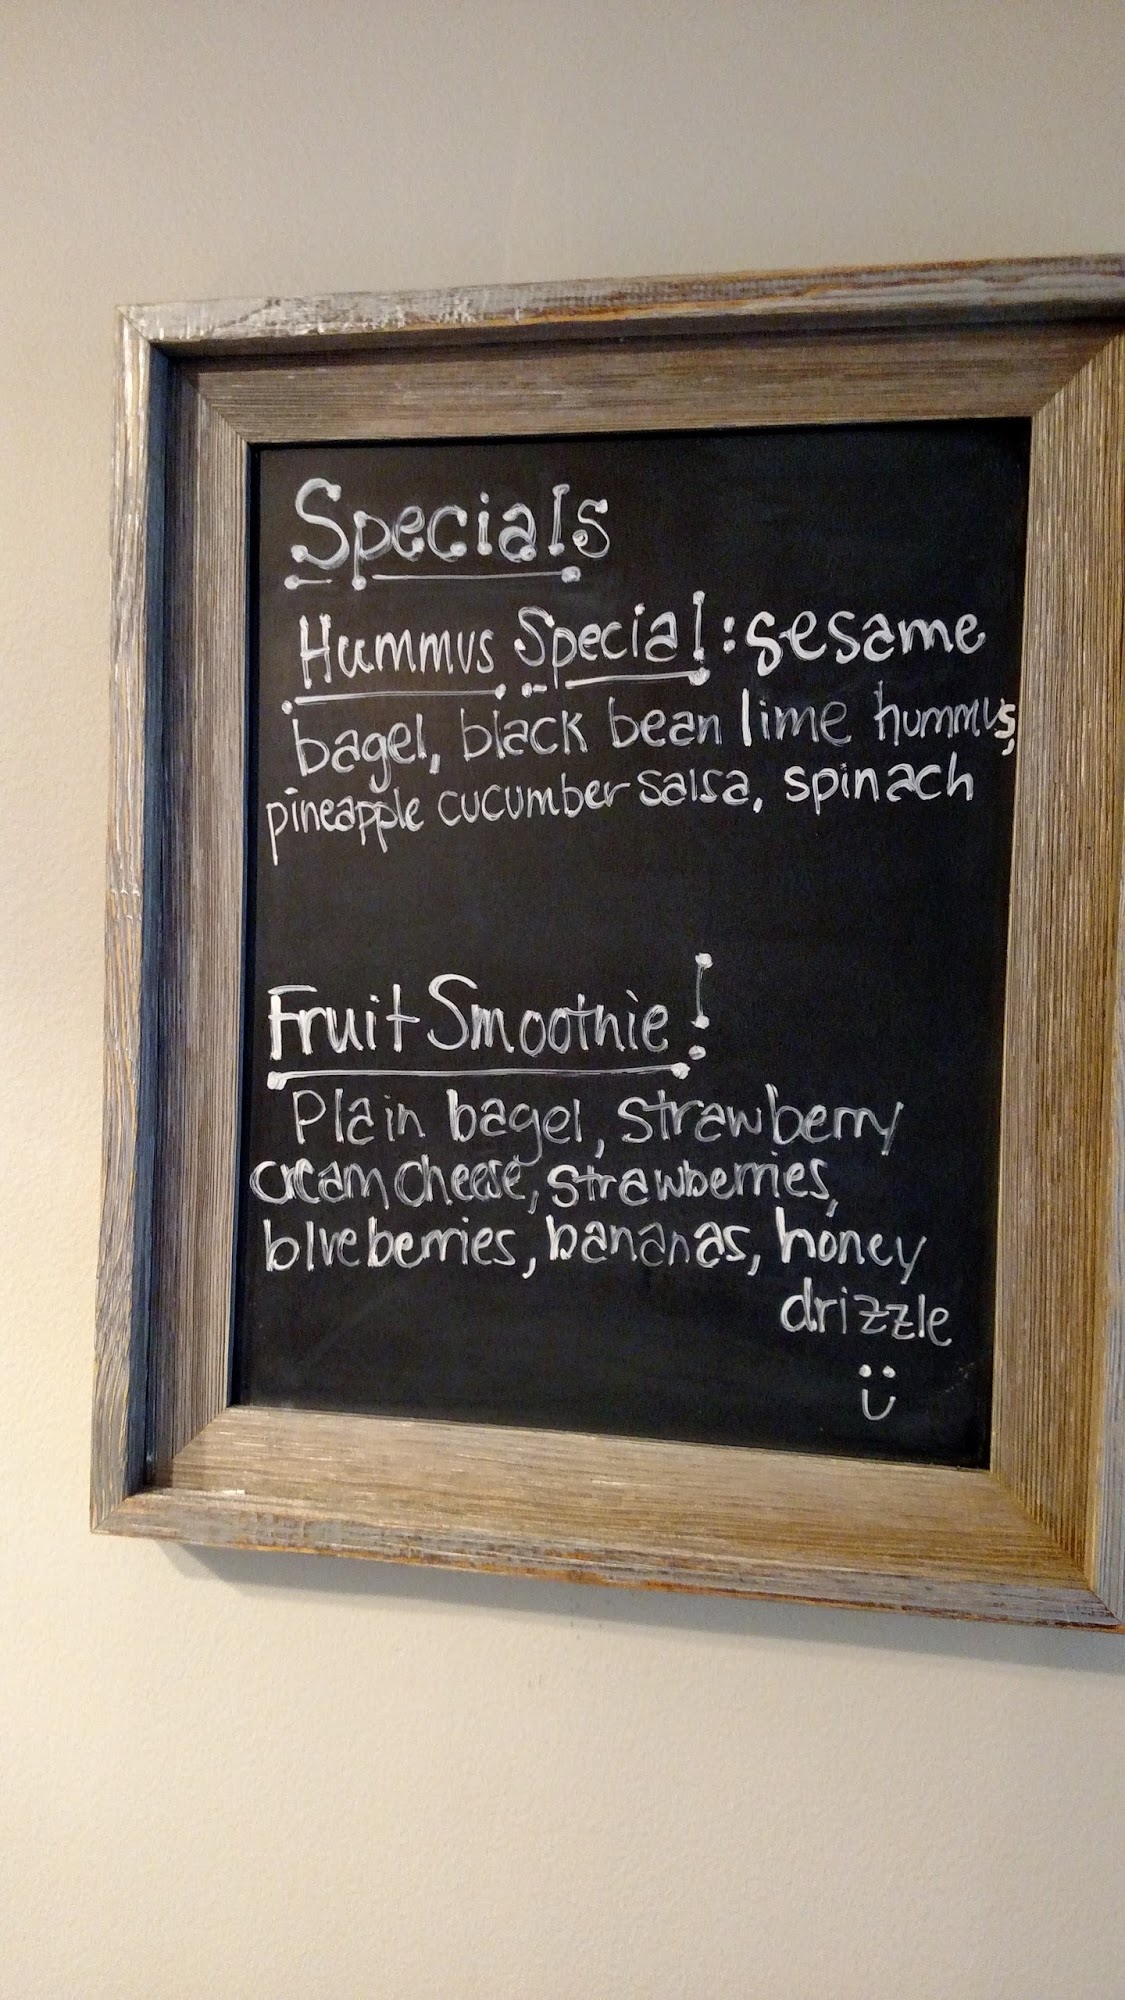 Specials
Hummus Special: sesame
bagel, black bean lime hummus,
pineapple cucumber salsa, spinach
Fruit Smoothie!
Plain bagel, strawberry
cream cheese, strawberries,
blueberries, bananas, honey
drizzle